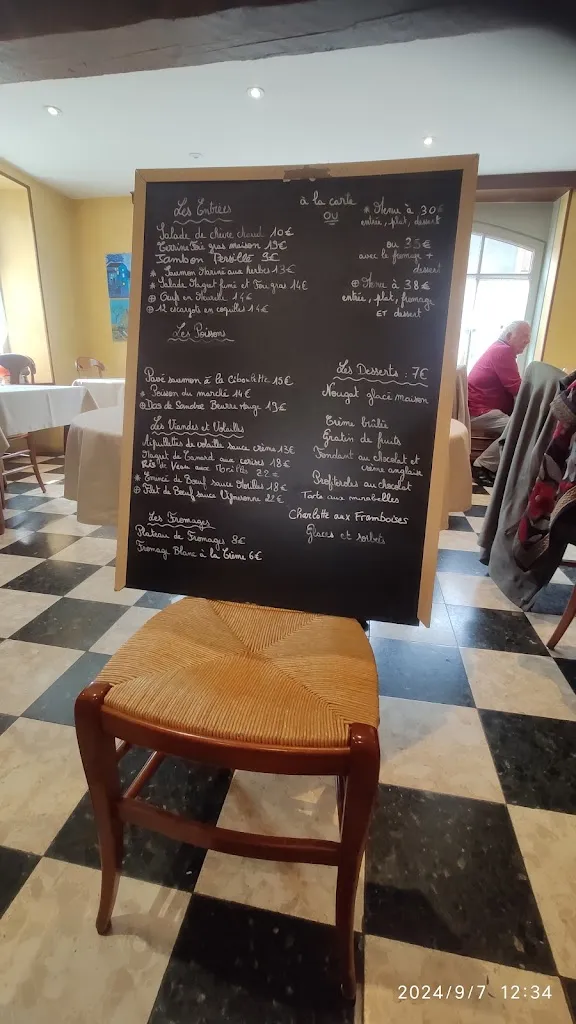 Les Entrées
Salade de chèvre chaud 10€
Terrine Foie gras maison 19€
Jambon Persillé 9€
* Saumon Mariné aux herbes 13€
* Salade Magret fumé et Foie gras 14€
⊕ Oeufs en Meurette 14€
⊕ 12 escargots en coquilles 14€
Les Poissons
Pavé saumon à la Ciboulette 15€
* Poisson du marché 14€
⊕ Dos de Sandre Beurre rouge 19€
Les Viandes et Volailles
Aiguillettes de volaille sauce crème 13€
Magret de Canard aux cerises 18€
Ris de Veau aux Morilles 22€
* Emincé de Boeuf sauce Morilles 18€
⊕ Filet de Boeuf sauce Vigneronne 22€
Les Fromages
Plateau de Fromages 8€
Fromage Blanc à la Crème 6€
à la carte
OU
* Menu à 30€
entrée, plat, dessert
ou 35€
avec le fromage +
dessert
⊕ Menu à 38€
entrée, plat, fromage
ET dessert
Les Desserts : 7€
Nougat glacé maison
Crème brûlée
Gratin de fruits
Fondant au chocolat et
crème anglaise
Profiteroles au chocolat
Tarte aux mirabelles
Charlotte aux Framboises
Glaces et sorbets
2024/9/7 12:34